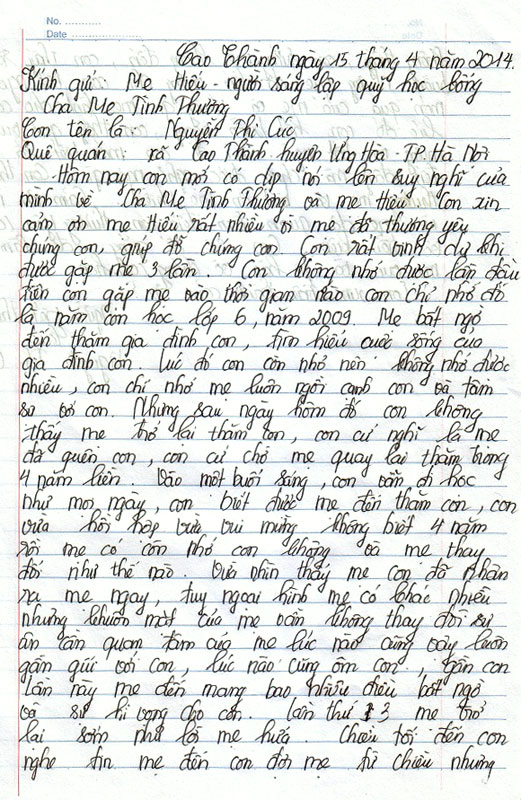 No. ............
Date ........................
Cao Thành ngày 15 tháng 4 năm 2014.
Kính gửi Mẹ Hiếu - người sáng lập quỹ học bổng
Cha Mẹ Tình Thương
Con tên là: Nguyễn Thị Cúc
Quê quán: xã Cao Thành huyện Ứng Hòa - TP. Hà Nội
Hôm nay con mới có dịp nói lên suy nghĩ của
mình về Cha Mẹ Tình Thương và mẹ Hiếu. Con xin
cảm ơn mẹ Hiếu rất nhiều vì mẹ đã thương yêu
chúng con, giúp đỡ chúng con. Con rất vinh dự khi
được gặp mẹ 3 lần. Con không nhớ được lần đầu
tiên con gặp mẹ vào thời gian nào con chỉ nhớ đó
là năm con học lớp 6, năm 2009. Mẹ bất ngờ
đến thăm gia đình con, tìm hiểu cuộc sống của
gia đình con. Lúc đó con còn nhỏ nên không nhớ được
nhiều, con chỉ nhớ mẹ luôn ngồi cạnh con và tâm
sự với con. Nhưng sau ngày hôm đó con không
thấy mẹ trở lại thăm con, con cứ nghĩ là mẹ
đã quên con, con cứ chờ mẹ quay lại thăm trong
4 năm liền. Vào một buổi sáng, con vẫn đi học
như mọi ngày, con biết được mẹ đến thăm con, con
vừa hồi hộp vừa vui mừng không biết 4 năm
rồi mẹ có còn nhớ con không và mẹ thay
đổi như thế nào. Vừa nhìn thấy mẹ con đã nhận
ra mẹ ngay, tuy ngoại hình mẹ có khác nhiều
nhưng khuôn mặt của mẹ vẫn không thay đổi sự
ân cần quan tâm của mẹ lúc nào cũng vậy luôn
gần gũi với con, lúc nào cũng ôm con, gần con
Lần này mẹ đến mang bao nhiêu điều bất ngờ
và sự hi vọng cho con. Lần thứ 3 mẹ trở
lại sớm như lời mẹ hứa. Chiều tối đến con
nghe tin mẹ đến con đợi mẹ từ chiều nhưng